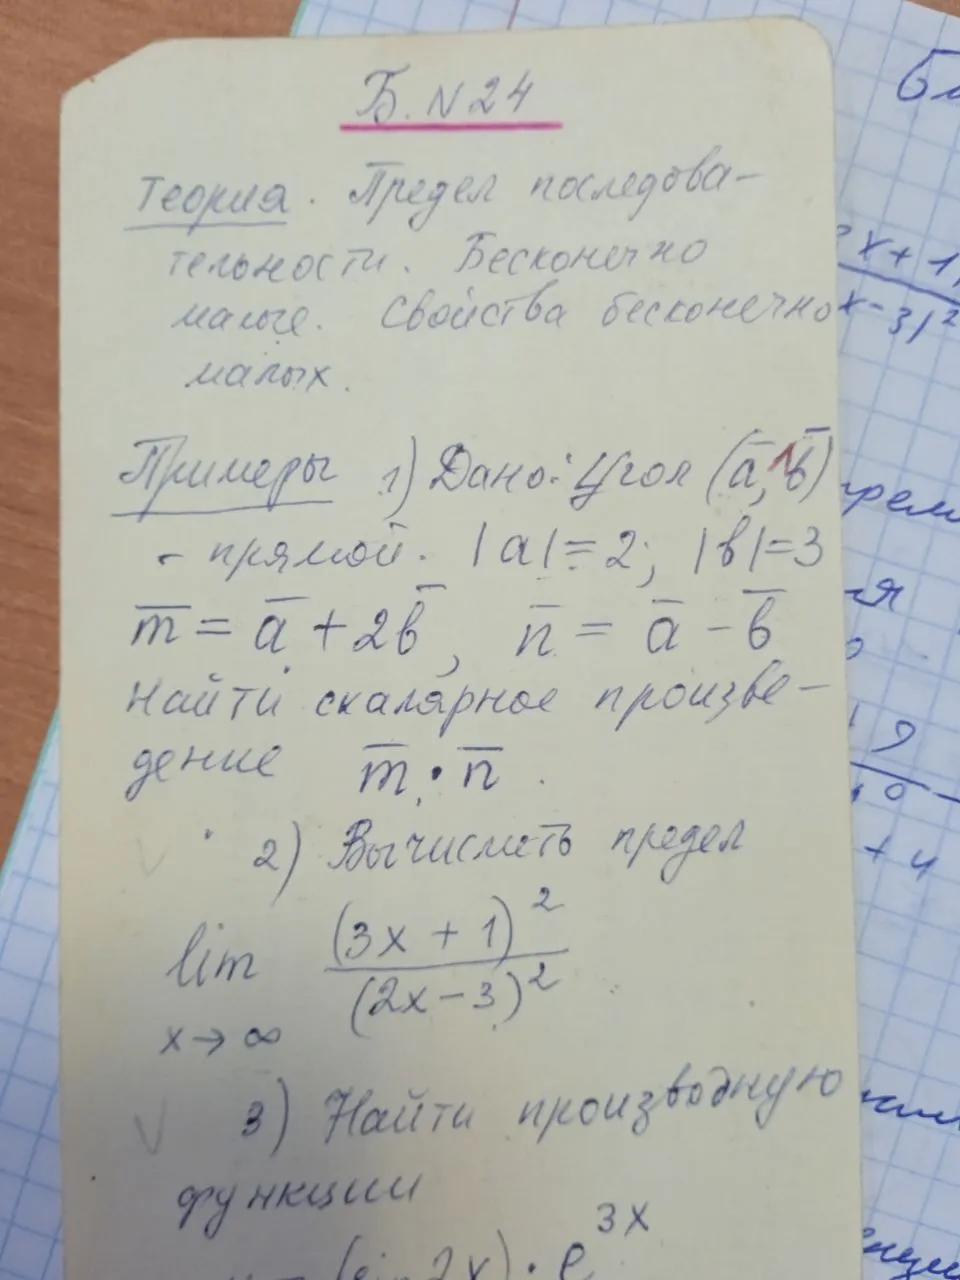 Б. N 24
Теория. Предел последова-
тельности. Бесконечно
малые. Свойства бесконечно
малых.
Примеры 1) Дано: Угол (a̅,^b̅)
- прямой. |a|=2; |b|=3
m̅ = a̅ + 2b̅, n̅ = a̅ - b̅
Найти скалярное произве-
дение m̅ · n̅.
2) Вычислить предел
lim (3x + 1)² / (2x - 3)²
x → ∞
3) Найти производную
функции
(sin 2x) · e^3x
x + 1
x - 3)²
9
+ 4